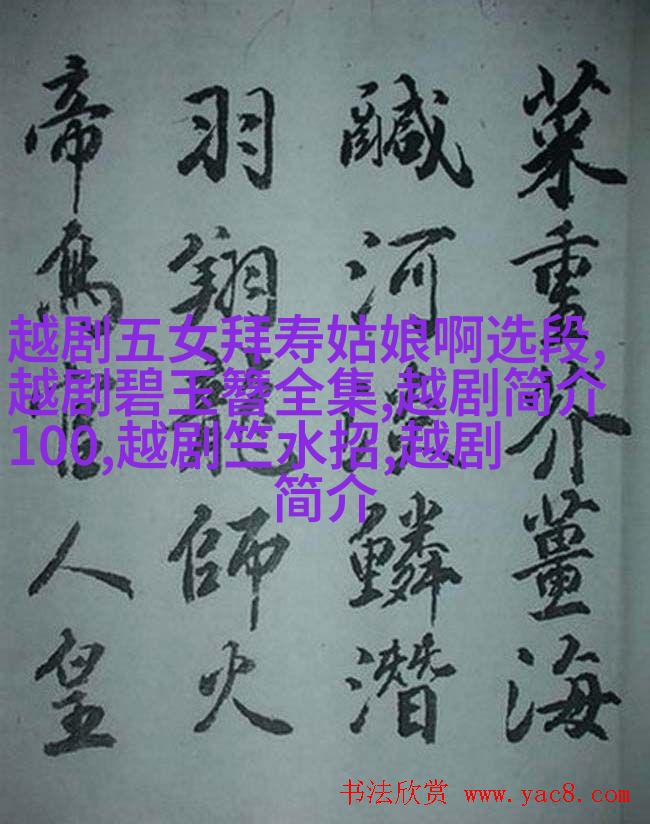 菜重芥薑海
鹹河鱗潛
羽翔龍師火
帝鳥人皇
越剧五女拜寿姑娘啊选段,
越剧碧玉簪全集,越剧简介
100,越剧竺水招,越剧
简介
书法欣赏 www.yac8.com